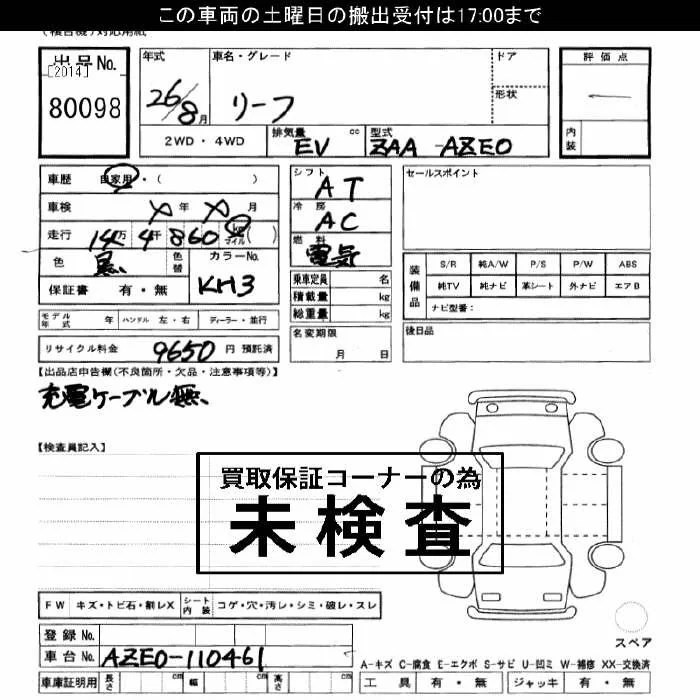 この車両の土曜日の搬出受付は17:00まで
出品No. [2014] 80098
年式 26/8月
車名・グレード リーフ
ドア
形状
評価点 ー
内装
2WD・4WD
排気量 EV cc
型式 ZAA-AZE0
車歴 自家用・( )
車検 年 月
走行 14万4千860 km マイル ( )
色 黒 色替
カラーNo. KH3
保証書 有・無
シフト AT
冷房 AC
燃料 電気
乗車定員 名
積載量 kg
総重量 kg
セールスポイント
装備品 S/R 純A/W P/S P/W ABS
純TV 純ナビ 革シート 外ナビ エアB
ナビ型番:
モデル年式 年 ハンドル 左・右 ディーラー・並行
名変期限 月 日
後日品
リサイクル料金 9650 円 預託済
【出品店申告欄(不良箇所・欠品・注意事項等)】
充電ケーブル無、
【検査員記入】
買取保証コーナーの為
未検査
FW キズ・トビ石・割レX シート内装 コゲ・穴・汚レ・シミ・破レ・スレ
スペア
登録No.
車台No. AZE0-110461
A-キズ C-腐食 E-エクボ S-サビ U-凹ミ W-補修 XX-交換済
車庫証明用 長さ cm 幅 cm 高さ cm
工具 有・無 ジャッキ 有・無